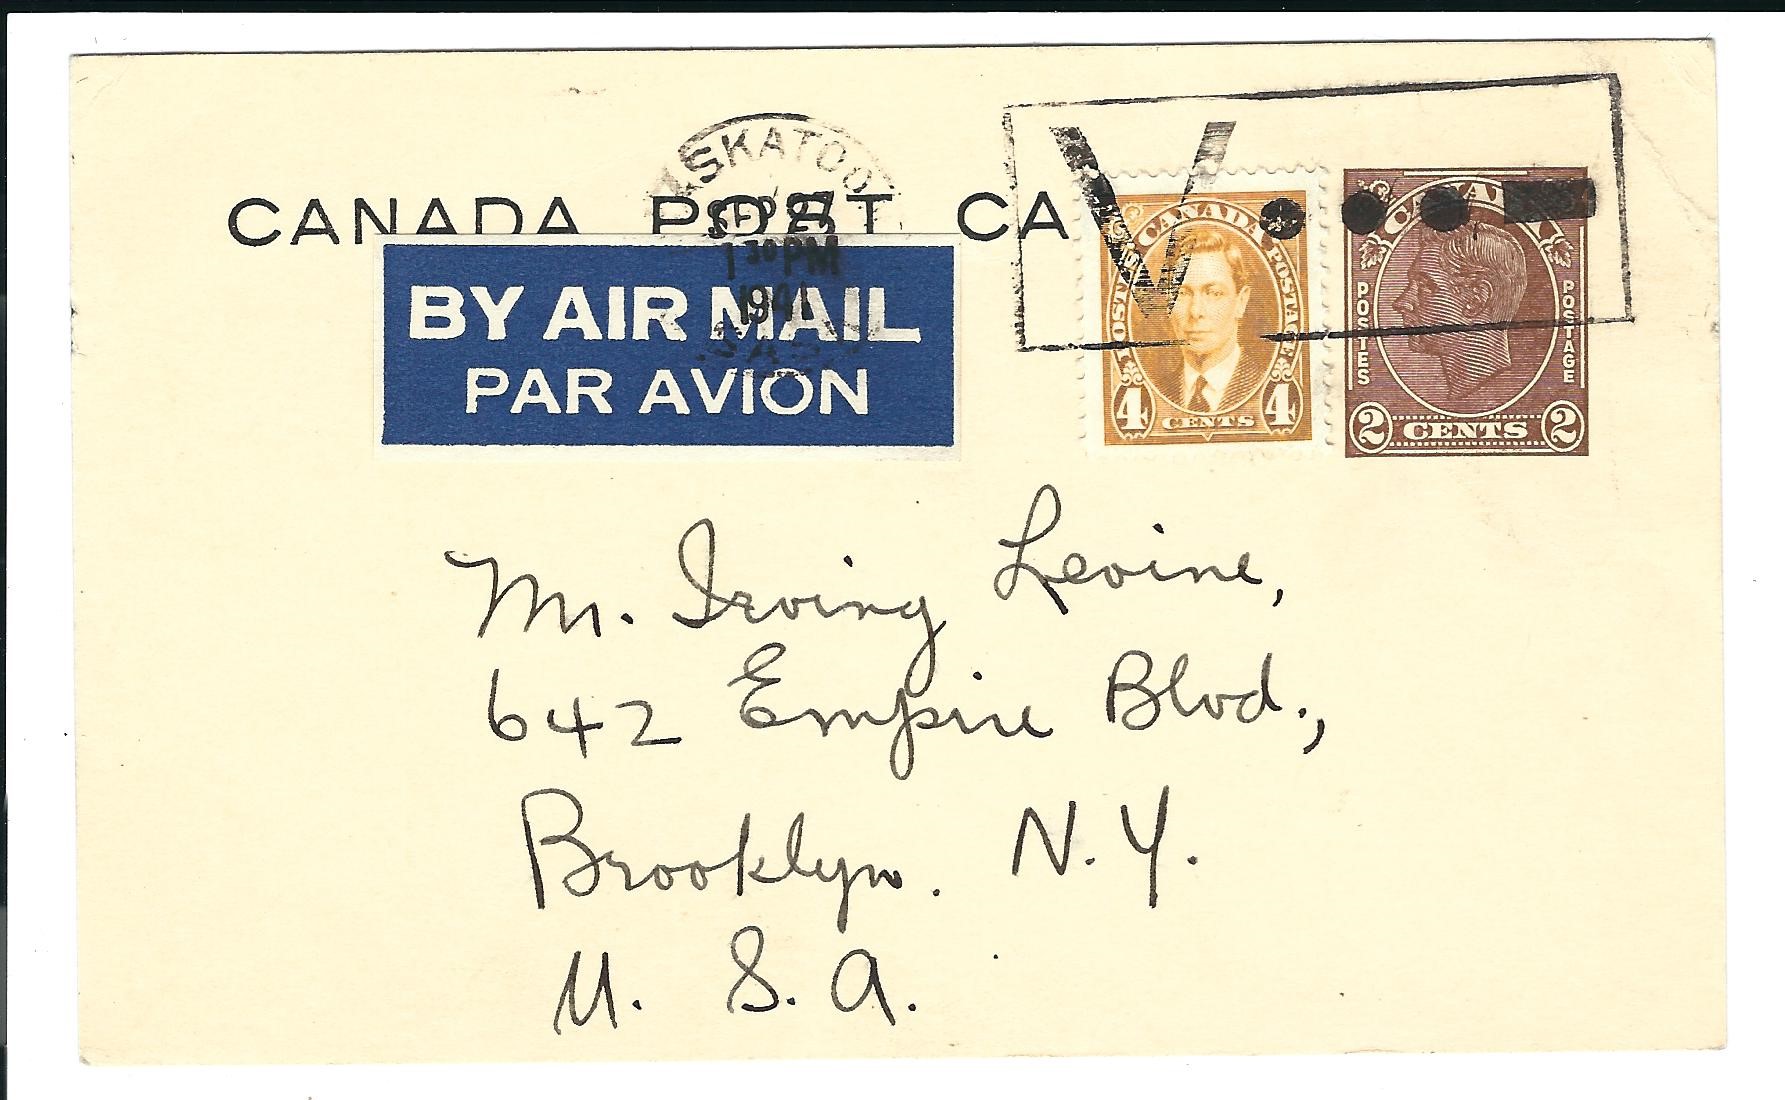 SASKATOO
CANADA POST CA
SEP 27
1 30 PM
1941
SASK
BY AIR MAIL
PAR AVION
V
CANADA
POSTES POSTAGE
4 CENTS 4
CANADA
POSTES POSTAGE
2 CENTS 2
Mr. Irving Levine,
642 Empire Blvd.,
Brooklyn. N. Y.
U. S. A.